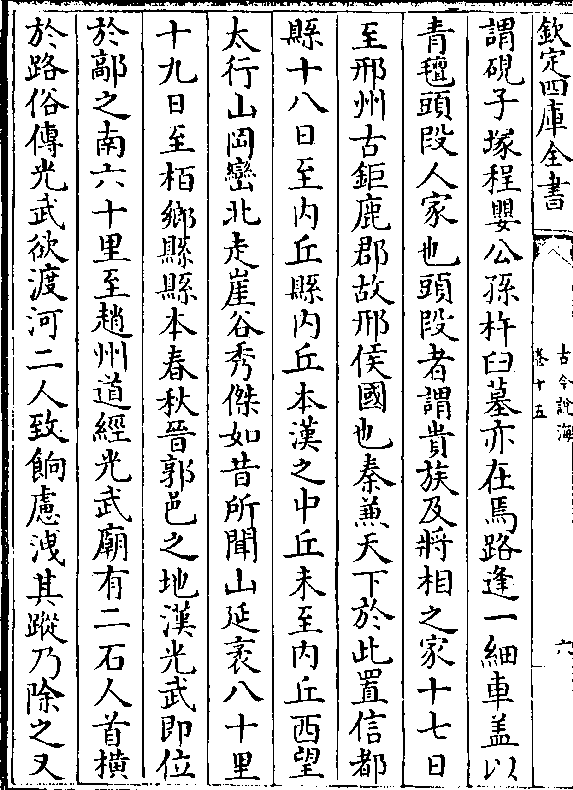 欽定四庫全書
古今說海
卷十五
六
謂硯子塚程嬰公孫杵臼墓亦在焉路逢一細車盖以
青氊頭段人家也頭段者謂貴族及將相之家十七日
至邢州古鉅鹿郡故邢侯國也秦兼天下於此置信都
縣十八日至内丘縣内丘本漢之中丘未至内丘西望
太行山岡巒北走崖谷秀傑如昔所聞山延袤八十里
十九日至栢鄉縣縣本春秋晉鄗邑之地漢光武即位
於鄗之南六十里至趙州道經光武廟有二石人首橫
於路俗傳光武欲渡河二人致餉慮洩其蹤乃除之又